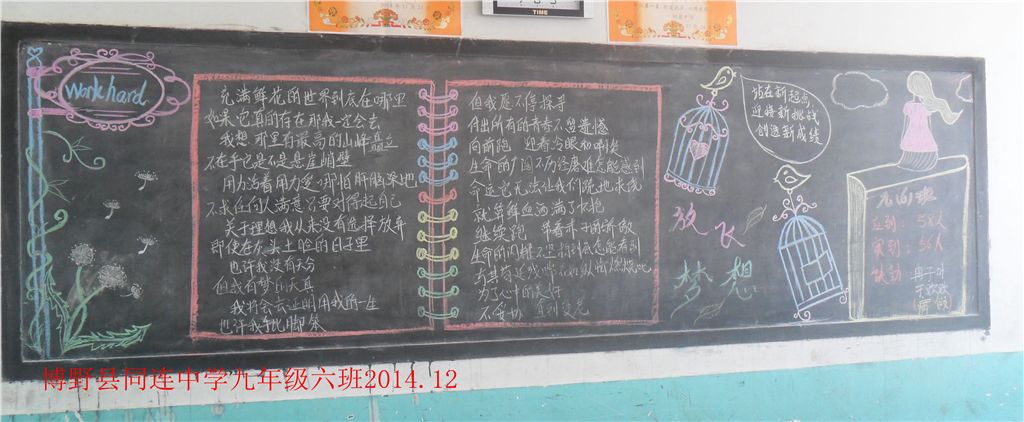 TIME
work hard
充满鲜花的世界到底在哪里
如果它真的存在那我一定会去
我想那里有最高的山峰矗立
不在乎它是不是悬崖峭壁
用力活着用力爱哪怕肝脑涂地
不求任何人满意只要对得起自己
关于理想我从来没有选择放弃
即使在灰头土脸的日子里
也许我没有天分
但我有梦的天真
我将会去证明用我的一生
也许我手比脚笨
但我愿不停探寻
付出所有的青春不留遗憾
向前跑 迎着冷眼和嘲笑
生命的广阔不历经磨难怎能感到
命运它无法让我们跪地求饶
就算鲜血洒满了怀抱
继续跑 带着赤子的骄傲
生命的闪耀不坚持到底怎能看到
与其苟延残喘不如纵情燃烧吧
为了心中的美好
不妥协 直到变老
放飞
梦想
站在新起点
迎接新挑战
创造新成绩
班
应到:58人
实到:56人
缺勤:
博野县同连中学九年级六班2014.12